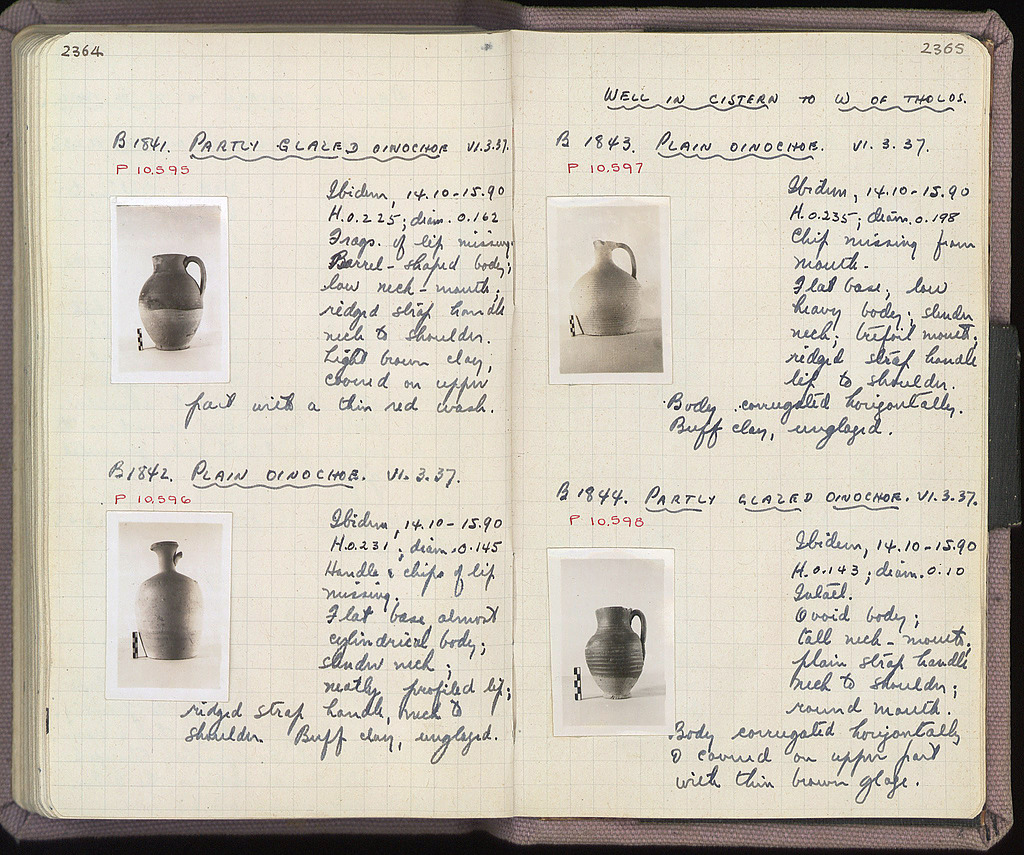 2364
B 1841. PARTLY GLAZED OINOCHOE VI.3.37.
P 10,595
Ibidem, 14.10-15.90
H.0.225; diam. 0.162
Frags. of lip missing.
Barrel-shaped body;
low neck-mouth;
ridged strap handle
neck to shoulder.
Light brown clay,
covered on upper
part with a thin red wash.
B 1842. PLAIN OINOCHOE. VI.3.37.
P 10,596
Ibidem, 14.10-15.90
H.0.231; diam. 0.145
Handle & chips of lip
missing.
Flat base, almost
cylindrical body;
slender neck;
neatly profiled lip;
ridged strap handle, neck to
shoulder. Buff clay, unglazed.
2365
WELL IN CISTERN TO W. OF THOLOS.
B 1843. PLAIN OINOCHOE. VI.3.37.
P 10,597
Ibidem, 14.10-15.90
H.0.235; diam. 0.198
Chip missing from
mouth.
Flat base; low
heavy body; slender
neck; trefoil mouth;
ridged strap handle
lip to shoulder.
Body corrugated horizontally.
Buff clay, unglazed.
B 1844. PARTLY GLAZED OINOCHOE. VI.3.37.
P 10,598
Ibidem, 14.10-15.90
H.0.143; diam. 0.10
Intact.
Ovoid body;
tall neck-mouth;
plain strap handle
neck to shoulder;
round mouth.
Body corrugated horizontally
& covered on upper part
with thin brown glaze.